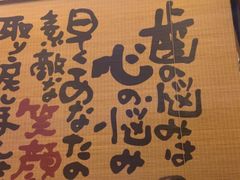 歯の悩みは
心の悩み
早くあなたの
素敵な笑顔
取り戻しま